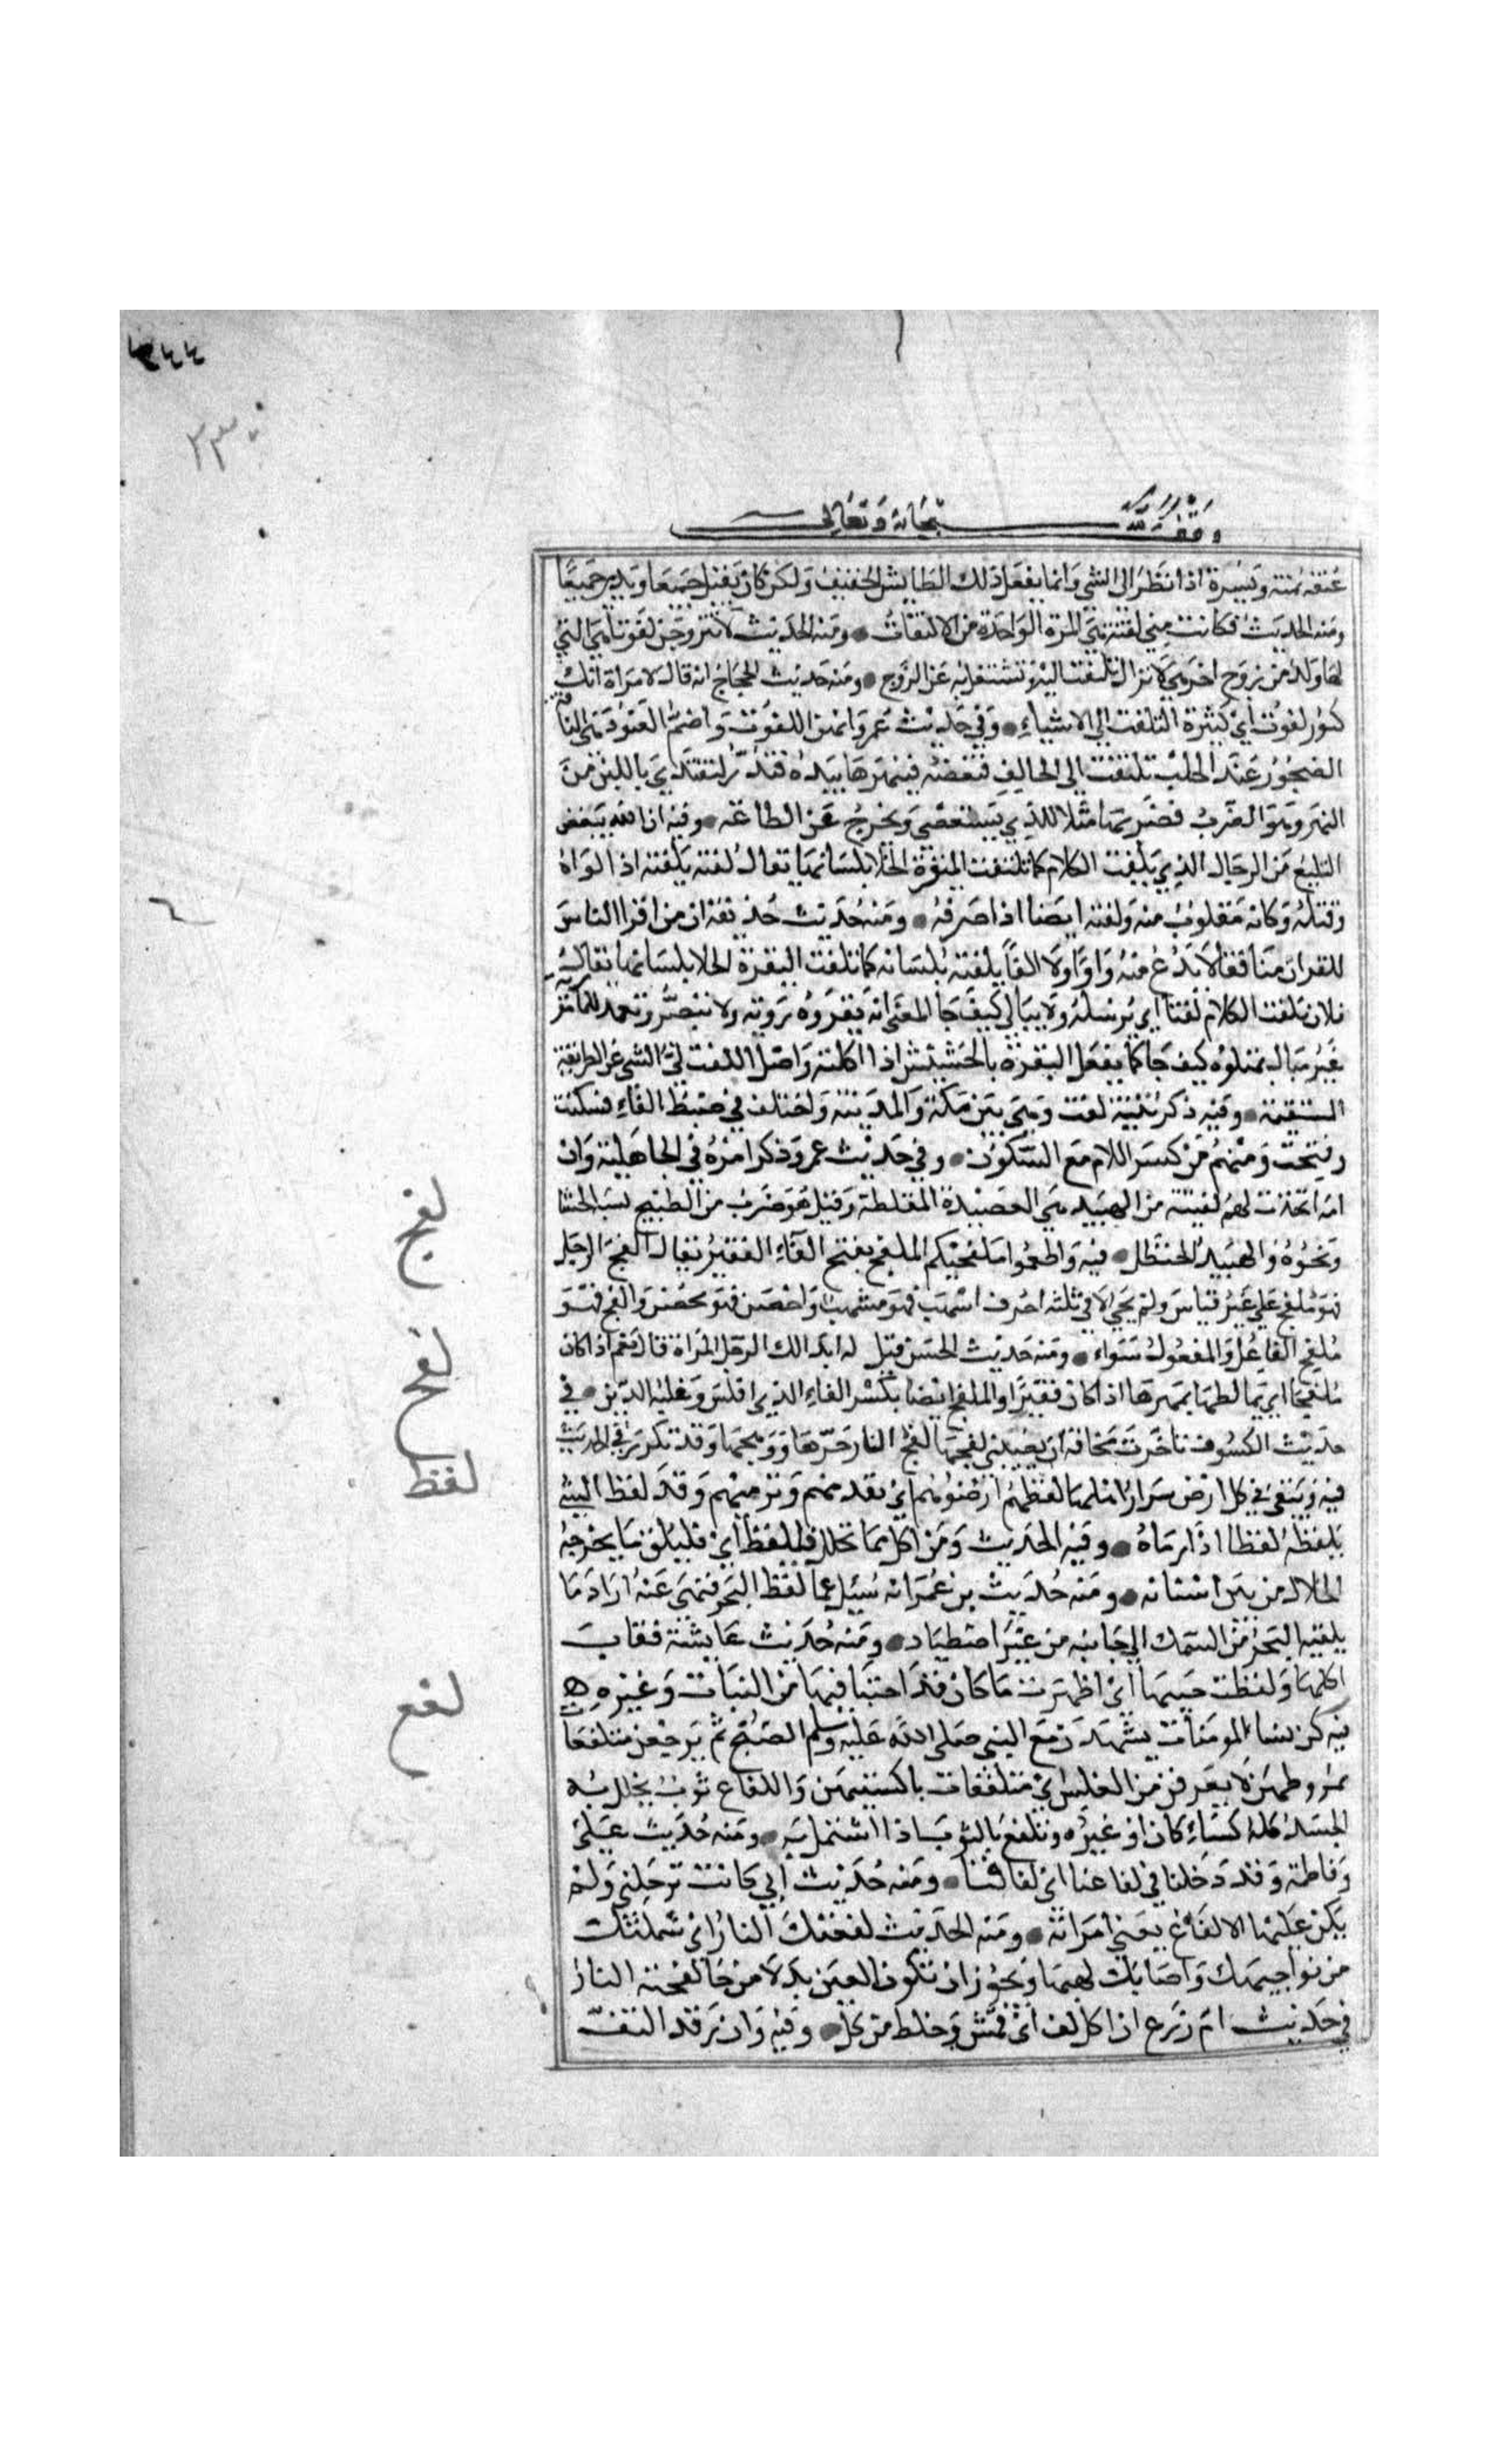 ٣٤٤
وقف لله سبحانه وتعالى
عنقه يمنة ويسرة اذا نظر الى الشي وانما يفعل ذلك الطايش الخفيف ولكن كان يقبل جميعا ويدبر جميعا
ومنه الحديث فكانت مني لفتة هي المرة الواحدة من الالتفات ومنه الحديث لا تتزوجن لفوتا هي التي
لها ولد من زوج اخر هي لا تزال تلتفت اليه وتشتغل به عن الزوج ومنه حديث الحجاج انه قال لامراة انك
كنون لفوت اي كثيرة التلفت الى الاشياء وفي حديث عمر وانهز اللفوت واضم العنود هي الناقة
الضجور عند الحلب تلتفت الى الحالب فتعضه فينهزها بيده فتدر لتفتدي باللبن من
النهز وهو الضرب فضربها مثلا للذي يستعصي ويخرج عن الطاعة وفيه ان الله يبغض
البليغ من الرجال الذي يلفت الكلام كما تلتفت البقرة الخلا بلسانها يقال لفته يلفته اذا لواه
وفتله وكانه مقلوب منه ولفته ايضا اذا صرفه ومنه حديث حذيفة ان من اقرا الناس
للقران منافقا لا يدع منه واوا ولا الفا يلفته بلسانه كما تلفت البقرة الخلا بلسانها يقال
فلان يلفت الكلام لفتا اي يرسله ولا يبالي كيف جا المعنى انه يقروه من غير روية ولا تبصر وتعمد للمامور
غير مبال بمتلوه كيف جا كما يفعل البقرة بالحشيش اذا اكلته واصل اللفت لي الشي عن الطريقة
المستقيمة وفيه ذكر ثنية لفت وهي بين مكة والمدينة واختلف في ضبط الفاء فسكنت
وفتحت ومنهم من كسر اللام مع السكون وفي حديث عمر وذكر امره في الجاهلية وان
امه اتخذت لهم لفيتة من الهبيد هي العصيدة المغلظة وقيل هو ضرب من الطبيخ يشبه الحسا
ونحوه والهبيد الحنظل فيه واطعموا ملفجيكم الملفج بفتح الفاء الفقير يقال الفج الرجل
فهو ملفج على غير قياس ولم يجي الا في ثلثة احرف اسهب فهو مسهب واحصن فهو محصن والفج فهو
ملفج الفاعل والمفعول سواء ومنه حديث الحسن قيل له ايدالك الرجل المراة قال نعم اذا كان
ملفجا اي يماطلها بمهرها اذا كان فقيرا والملفج ايضا بكسر الفاء الذي افلس وغلبه الدين في
حديث الكسوف تاخرت مخافة ان يصيبني لفحها لفح النار حرها ووهجها وقد تكرر في الحديث
فيه ويبقى في كل ارض شرار اهلها لفظهم ارضوهم اي تقذفهم وترميهم وقد لفظ الشي
يلفظه لفظا اذا رماه وفيه الحديث ومن اكل مما تخلل فليلفظ اي فليلق ما يخرجه
الخلال من بين اسنانه ومنه حديث بن عمر انه سئل عما لفظ البحر فنهى عنه اراد ما
يلقيه البحر من السمك الى جانبه من غير اصطياد ومنه حديث عايشة فقات
اكلها ولفظت خبيها اي اظهرت ما كان قد اختبا فيها من النبات وغيره ه
فيه كن نساء المومنات يشهدن مع النبي صلى الله عليه وسلم الصبح ثم يرجعن متلفعات
بمروطهن لا يعرفن من الغلس اي متلففات باكسيتهن واللفاع ثوب يجلل به
الجسد كله كساء كان او غيره وتلفع بالثوب اذا اشتمل به ومنه حديث علي
وفاطمة وقد دخلنا في لفاعنا اي لحافنا ومنه حديث ابي كانت ترجلني ولم
يكن عليها الا لفاع يعني امراته ومنه الحديث لفعتك النار اي شملتك
من نواحيك واصابك لهبها ويجوز ان تكون العين بدلا من حا لفحته النار
في حديث ام زرع ان اكل لف اي قمش وخلط من كل وفيه وان رقد التف
لفج
لفح
لفظ
لفع